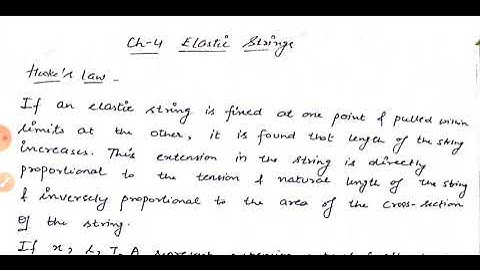 Ch-4 Elastic Strings
Hooke's Law -
If an elastic string is fixed at one point & pulled within
limits at the other, it is found that length of the string
increases. This extension in the string is directly
proportional to the tension & natural length of the string
& inversely proportional to the area of the cross-section
of the string.
If x, L, T, A represent